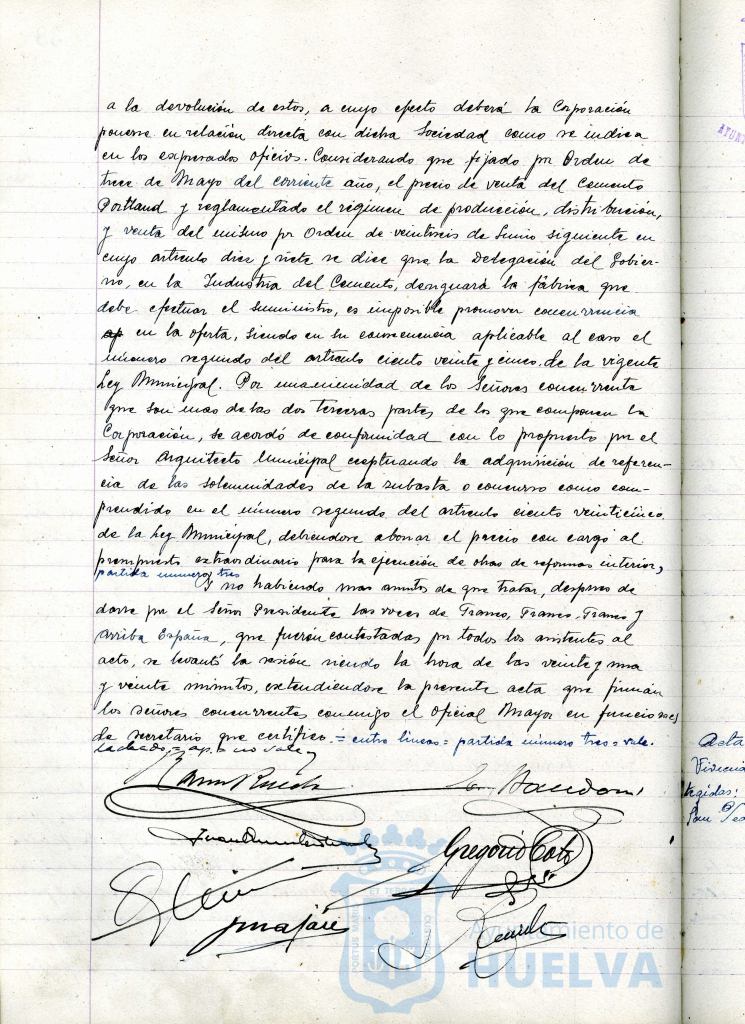 a la devolución de estos, a cuyo efecto deberá la Corporación
ponerse en relación directa con dicha Sociedad como se indica
en los expresados oficios. Considerando que fijado por Orden de
trece de Mayo del corriente año, el precio de venta del Cemento
Portland y reglamentado el régimen de producción, distribución,
y venta del mismo por Orden de veintiseis de Junio siguiente en
cuyo articulo diez y siete se dice que la Delegación del Gobier-
no, en la Industria del Cemento, designará la fábrica que
debe efectuar el suministro, es imposible promover concurrencia
ap en la oferta, siendo en su consecuencia aplicable al caso el
número segundo del articulo ciento veinte y cinco de la vigente
Ley Municipal. Por unanimidad de los Señores concurrente
que son mas de las dos terceras partes de los que componen la
Corporación, se acordó de conformidad con lo propuesto por el
Señor Arquitecto Municipal exceptuando la adquisición de referen-
cia de las solemnidades de la subasta o concurso como com-
prendido en el número segundo del articulo ciento veinticinco
de la Ley Municipal, debiendose abonar el precio con cargo al
presupuesto extraordinario para la ejecución de obras de reformas interior,
partida número tres
Y no habiendo mas asuntos de que tratar, despues de
darse por el Señor Presidente las voces de Franco, Franco, Franco y
Arriba España, que fuerón contestadas por todos los asistentes al
acto, se levantó la sesión siendo la hora de las veinte y una
y veinte minutos, extendiendose la presente acta que firmán
los señores concurrentes conmigo el Oficial Mayor en funciones
de secretario que certifico. = entre lineas = partida número tres = vale.
tachado = ap = no vale
Gregorio Coto
Ayuntamiento de
HUELVA
Acta
Vivienda
tegidas: